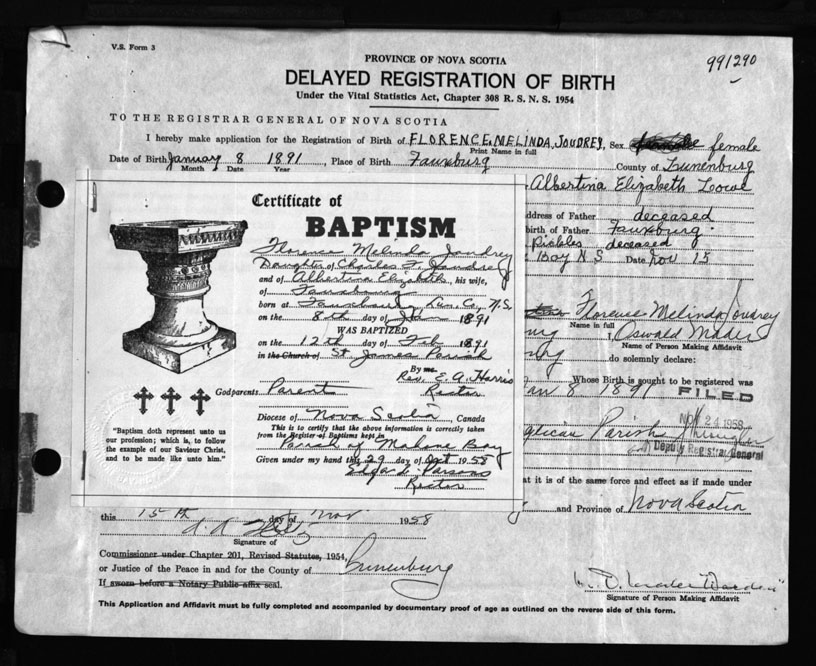 V.S. Form 3
991290
PROVINCE OF NOVA SCOTIA
DELAYED REGISTRATION OF BIRTH
Under the Vital Statistics Act, Chapter 308 R. S. N. S. 1954
TO THE REGISTRAR GENERAL OF NOVA SCOTIA
I hereby make application for the Registration of Birth of FLORENCE, MELINDA, JOUDREY, Sex female
Print Name in full
Date of Birth January 8 1891, Place of Birth Fauxburg County of Lunenburg
Month Date Year
Albertina Elizabeth
ddress of Father deceased
birth of Father Fauxburg
Pickles deceased
Bay N S Date Nov 15
Florence Melinda Joudrey
Name in full
I, Oswald Mader
Name of Person Making Affidavit
do solemnly declare:
Whose Birth is sought to be registered was
an 8 1891 FILED
NOV 24 1958
glican Parish
Deputy Registrar General
at it is of the same force and effect as if made under
and Province of Nova Scotia
Certificate of
BAPTISM
Florence Melinda Joudrey
Daughter of Charles F. Joudrey
and of Albertina Elizabeth, his wife,
of Fauxburg
born at Fauxburg Lun. Co., N.S.
on the 8th day of Jan 1891
WAS BAPTIZED
on the 12th day of Feb 1891
in the Church of St James Parish
By me,
Rev. E. A. Harris
Rector
Godparents Parent
Diocese of Nova Scotia Canada
This is to certify that the above information is correctly taken
from the Register of Baptisms kept in
Parish of Mahone Bay
Given under my hand this 29 day of Oct 1958
Edgar L. Parsons
Rector
"Baptism doth represent unto us
our profession; which is, to follow
the example of our Saviour Christ,
and to be made like unto him."
this 15th day of Nov 1958
Signature of
Commissioner under Chapter 201, Revised Statutes, 1954,
or Justice of the Peace in and for the County of Lunenburg
If sworn before a Notary Public affix seal.
Signature of Person Making Affidavit
This Application and Affidavit must be fully completed and accompanied by documentary proof of age as outlined on the reverse side of this form.